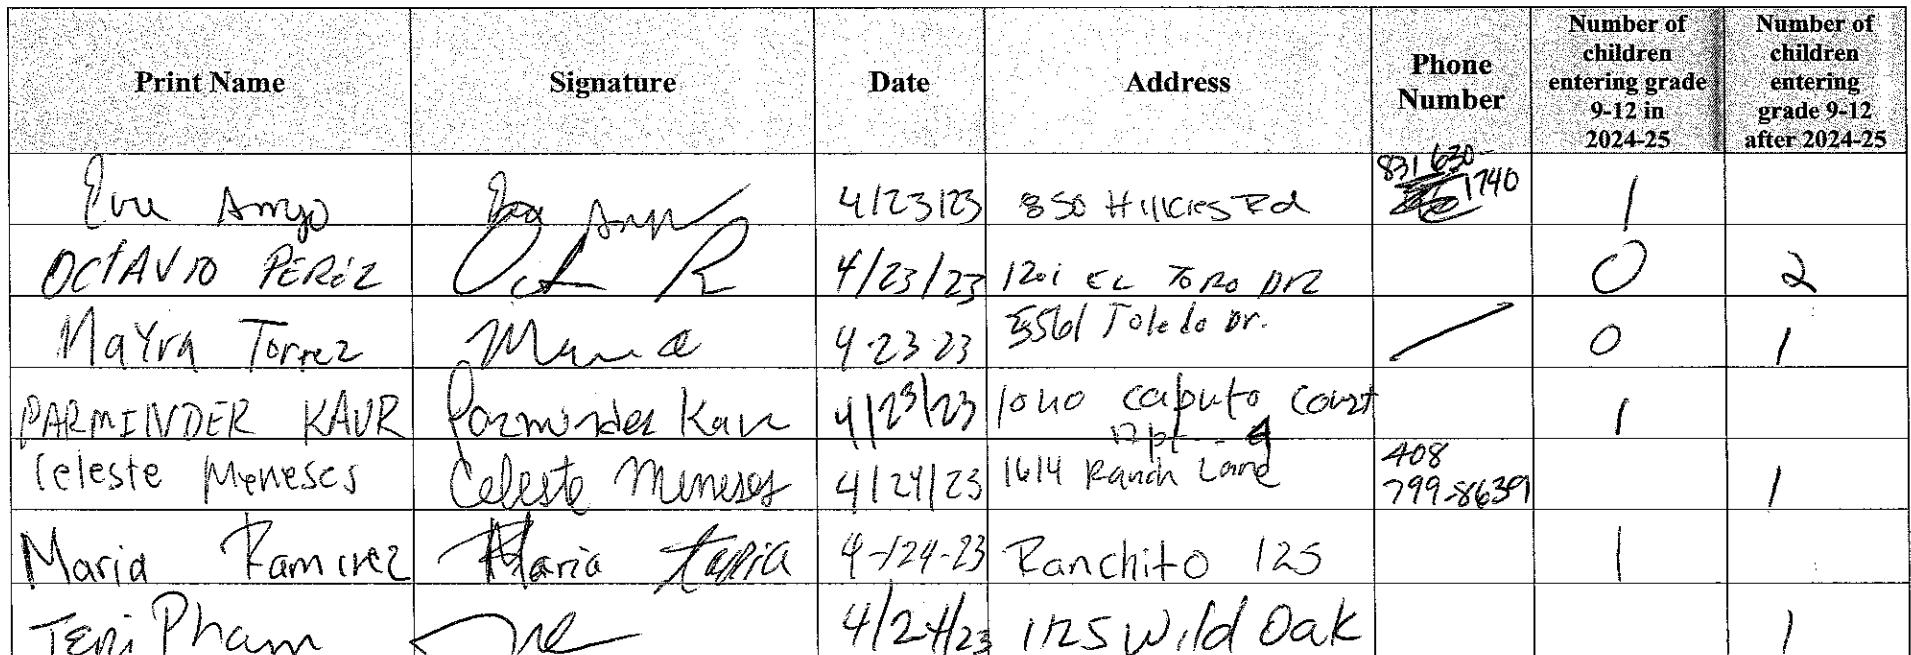 Print Name Signature Date Address Phone Number Number of children entering grade 9-12 in 2024-25 Number of children entering grade 9-12 after 2024-25
Eva Arroyo 4/23/23 850 Hillcres Rd 831 630-1740 1
OCTAVIO PEREZ 4/23/23 1201 EL TORO DR 0 2
Mayra Torrez 4-23-23 3561 Toledo Dr. 0 1
PARMINDER KAUR Parminder Kaur 4/23/23 1040 Caputo Court Apt - 9 1
Celeste Meneses Celeste Meneses 4/24/23 1614 Ranch Lane 408 799-8639 1
Maria Ramirez Maria Tapia 4-24-23 Ranchito 125 1
Teri Pham 4/24/23 1125 Wild Oak 1